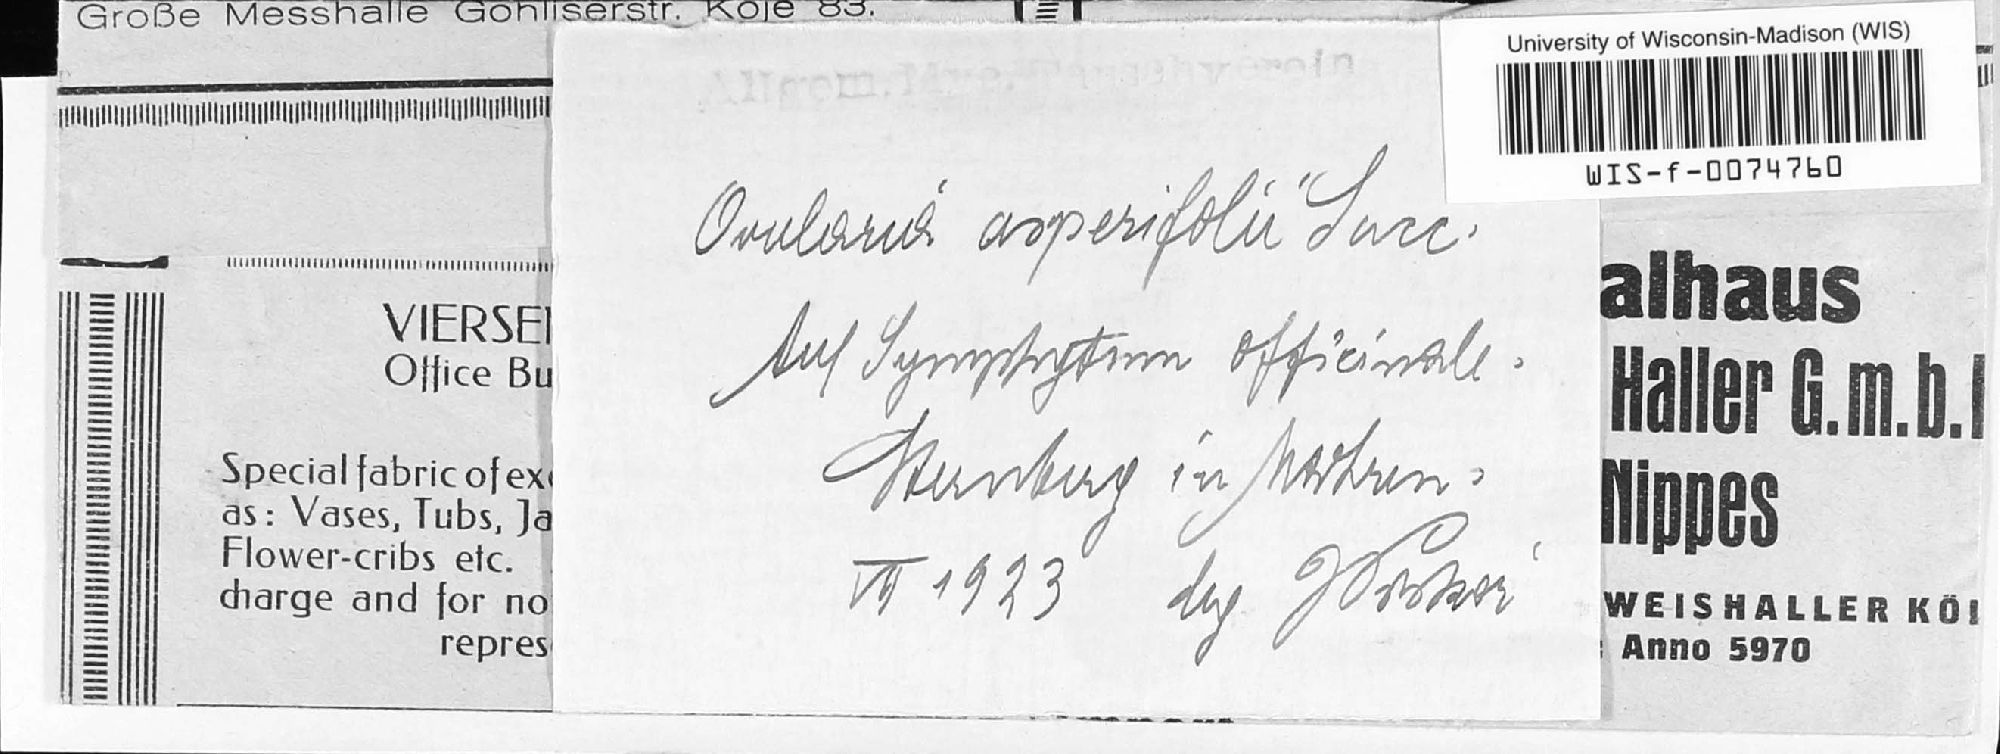 Große Messhalle Gohliserstr. Koje 83.
University of Wisconsin-Madison (WIS)
WIS-f-0074760
Ovularia asperifolii Sacc.
Auf Symphytum officinale.
Sternberg in Mähren.
VII 1923 leg. J Piskoř
VIERSE
Office Bu
Special fabric of ex
as: Vases, Tubs, Ja
Flower-cribs etc.
charge and for no
repres
alhaus
Haller G.m.b.
Nippes
WEISHALLER KÖ
Anno 5970